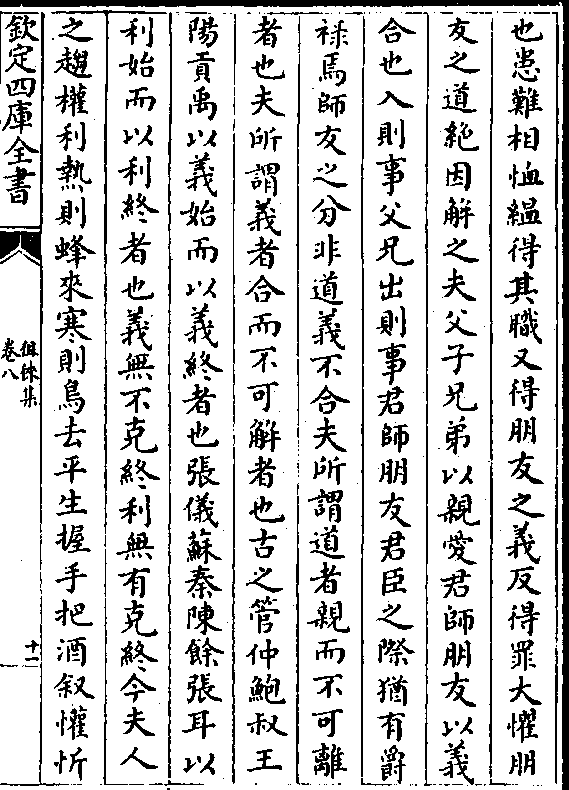 也患難相恤縕得其職又得朋友之義反得罪大懼朋
友之道絶因解之夫父子兄弟以親愛君師朋友以義
合也入則事父兄出則事君師朋友君臣之際猶有爵
祿焉師友之分非道義不合夫所謂道者親而不可離
者也夫所謂義者合而不可解者也古之管仲鮑叔王
陽貢禹以義始而以義終者也張儀蘇秦陳餘張耳以
利始而以利終者也義無不克終利無有克終今夫人
之趨權利熱則蜂來寒則鳥去平生握手把酒叙懽忻
欽定四庫全書
徂徠集
卷八
十一